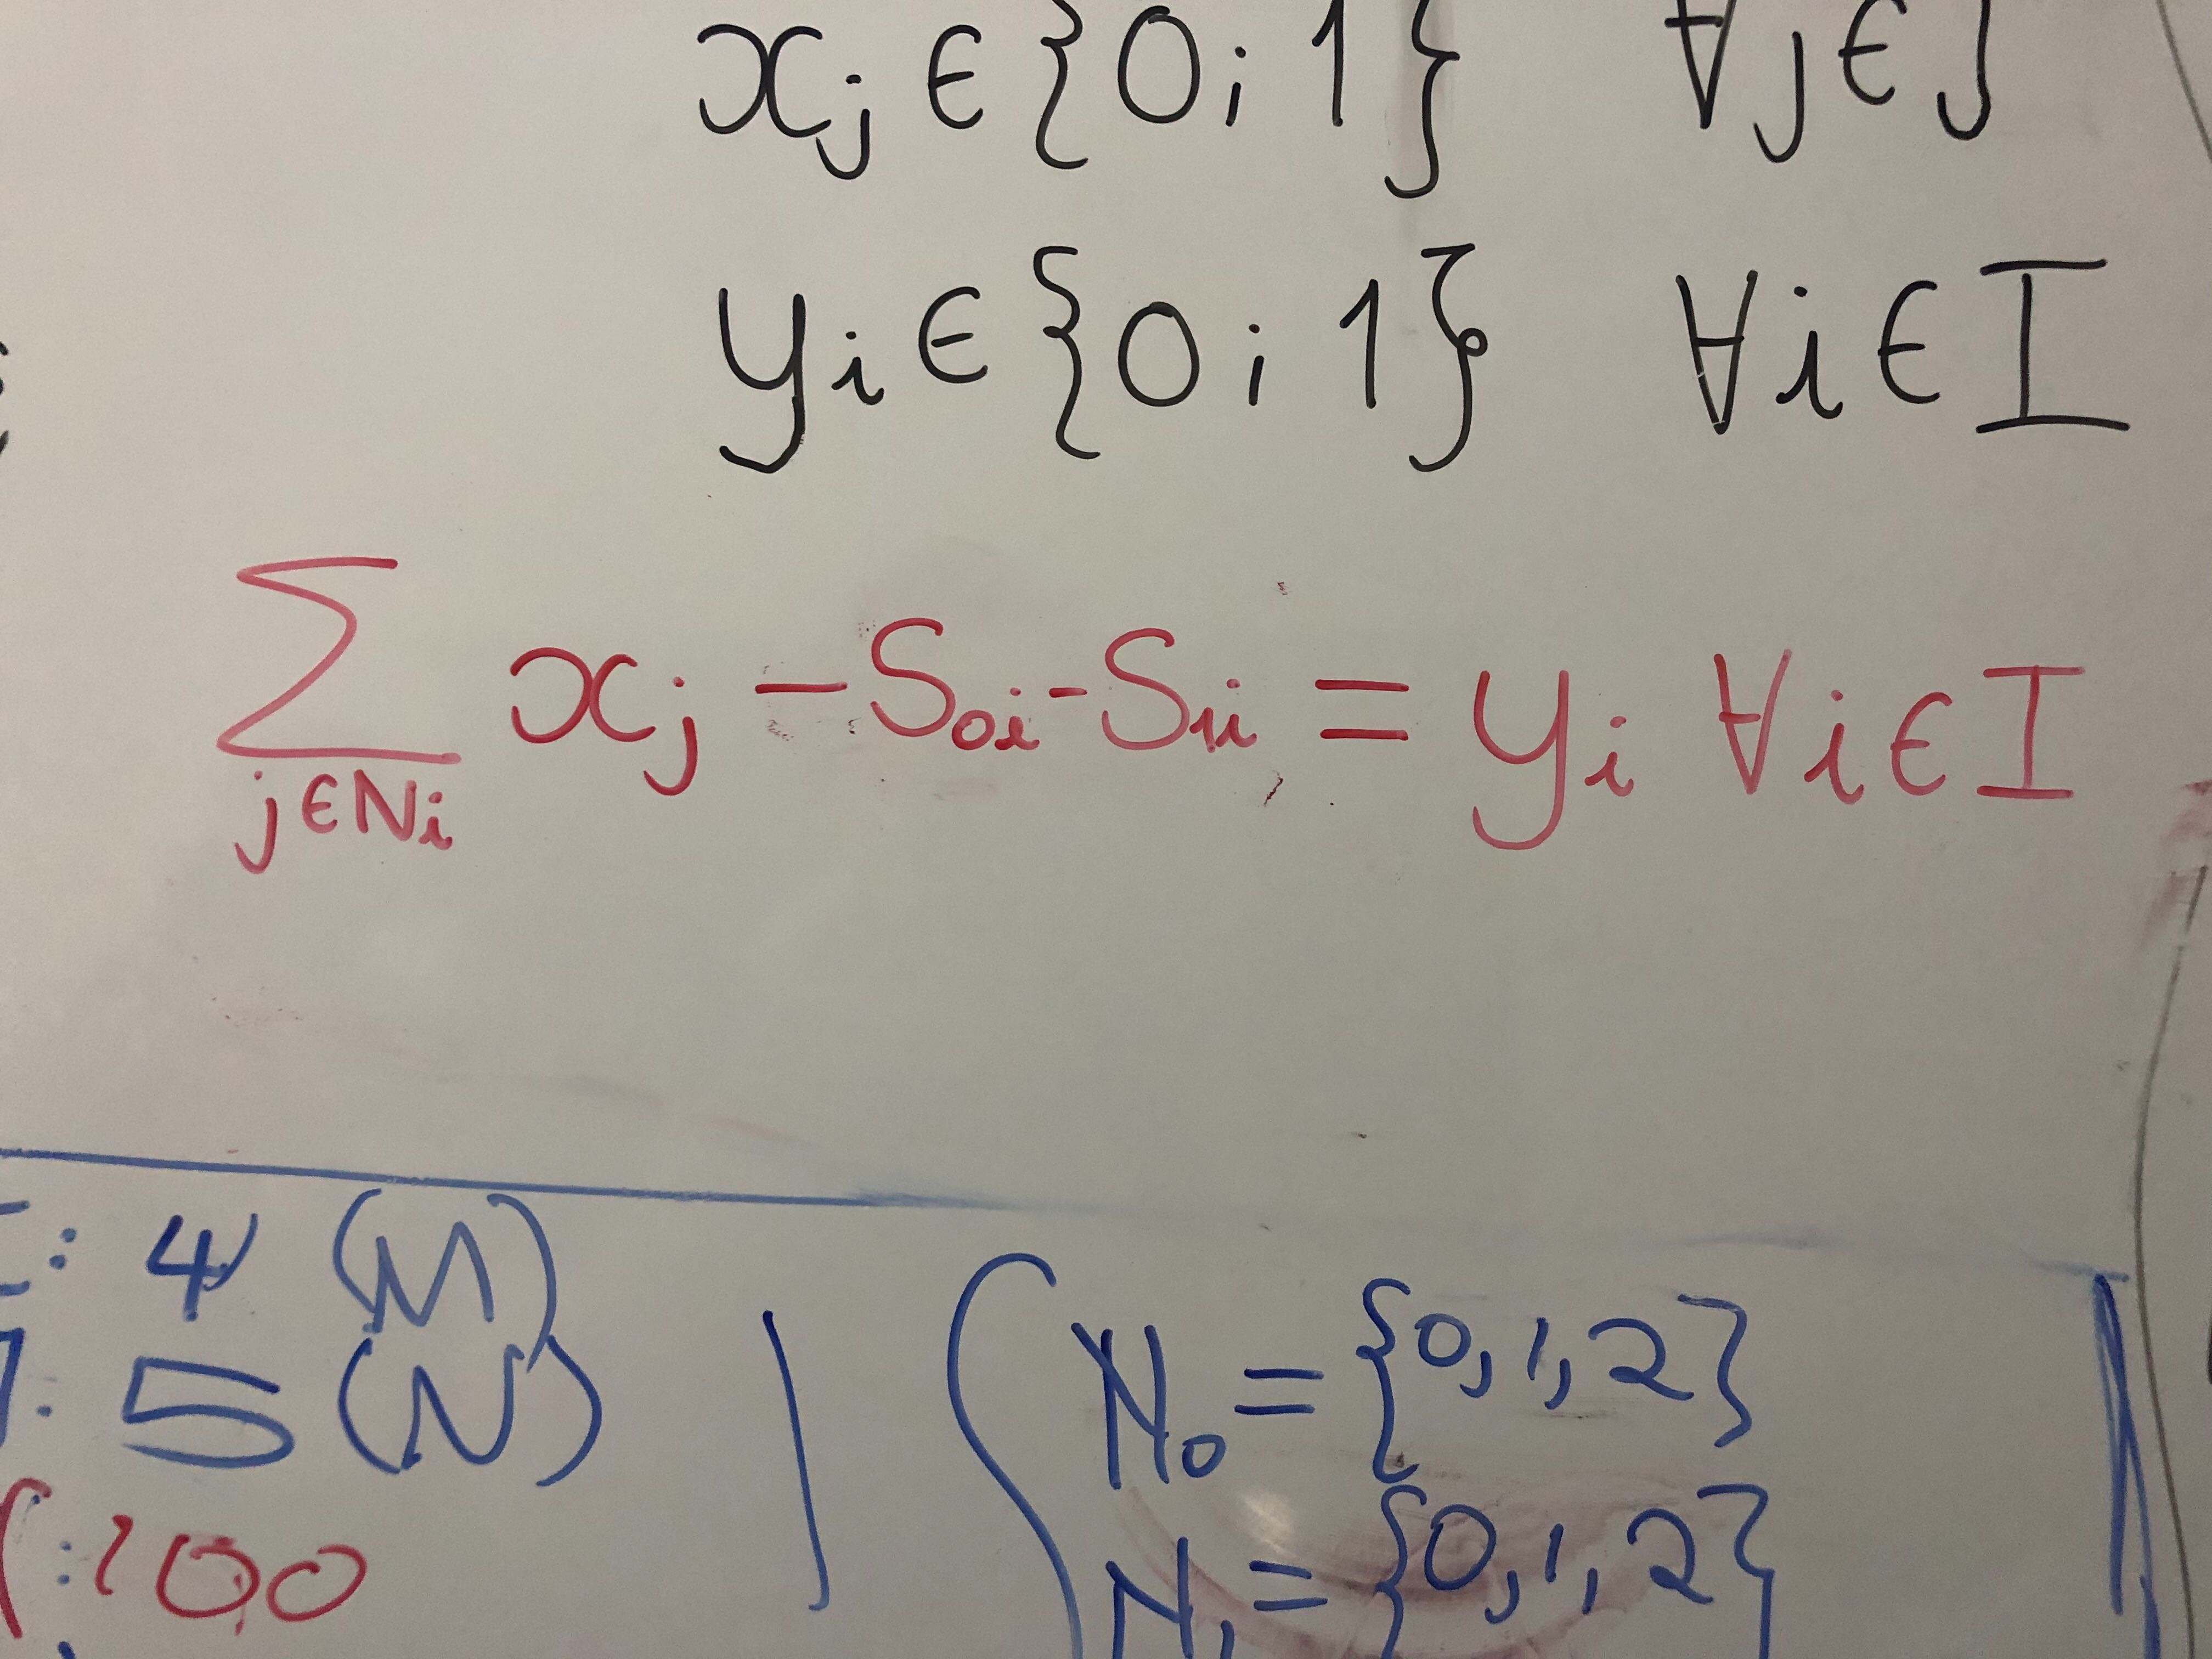 xj ∈ {0; 1} ∀j∈J
yi ∈ {0; 1} ∀i∈I
∑ j∈Ni xj − S0i - S1i = yi ∀i∈I
: 4 (M)
: 5 (N)
: 100
N0 = {0,1,2}
N1 = {0,1,2}